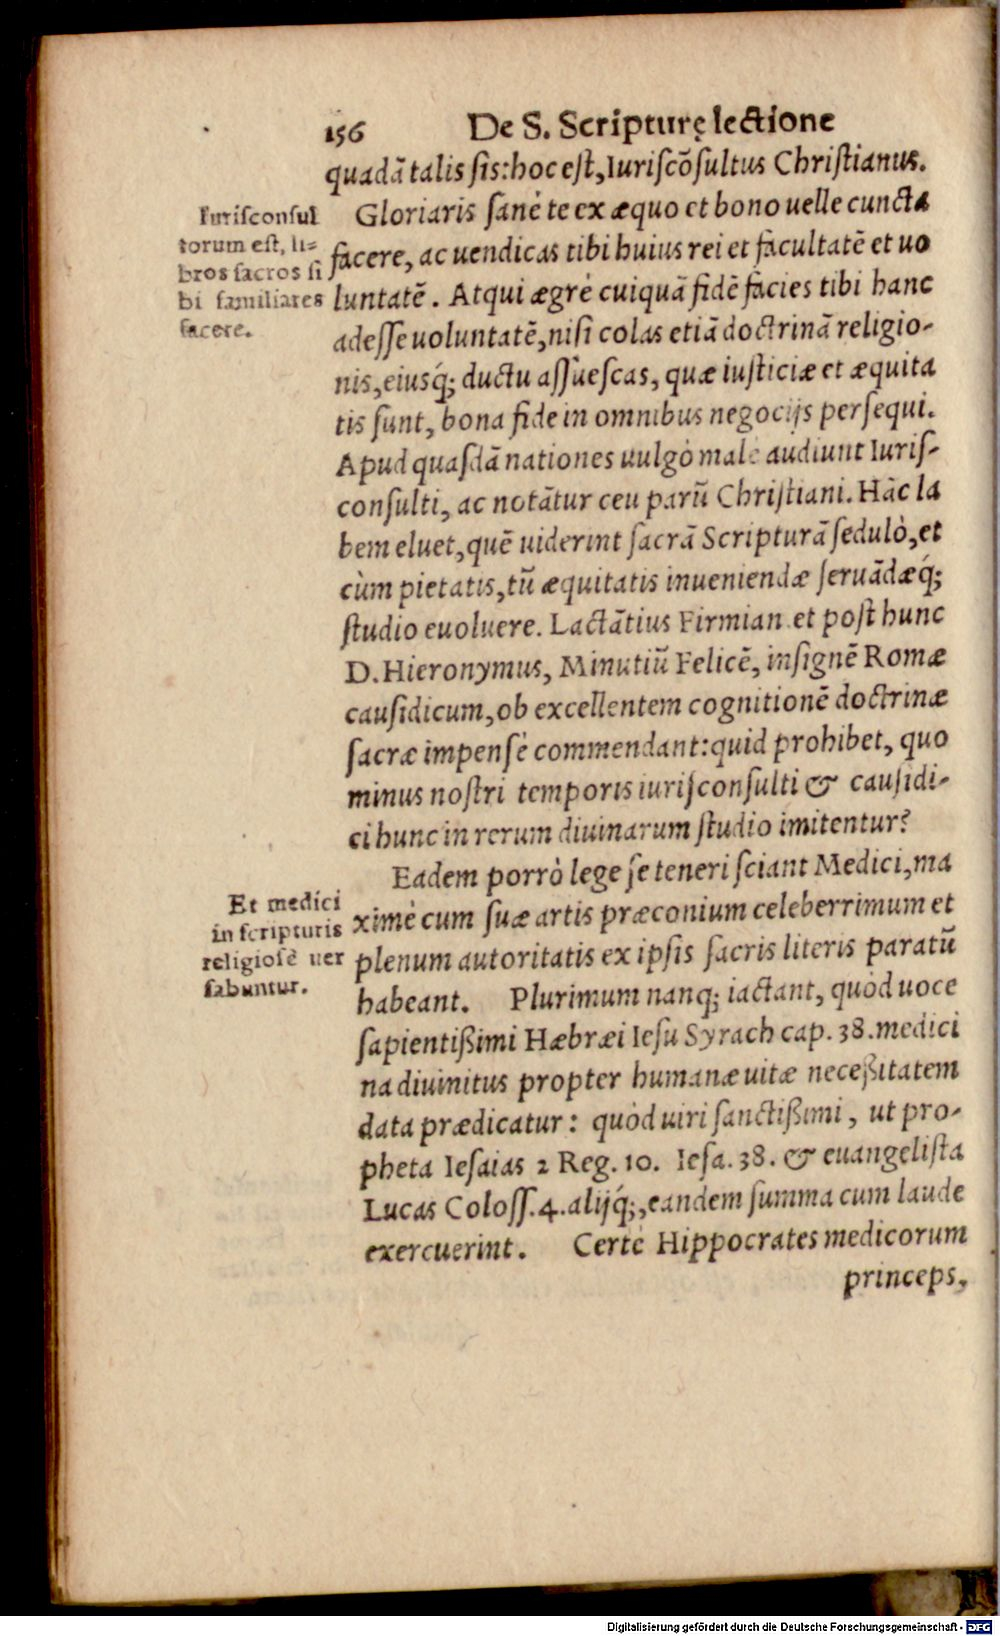 156 De S. Scripturę lectione
quadā talis sis: hoc est, Iuriscōsultus Christianus.
Iurisconsul
torum est, li-
bros sacros si
bi familiares
facere.
Gloriaris sanè te ex æquo et bono uelle cuncta
facere, ac uendicas tibi huius rei et facultatē et uo
luntatē. Atqui ægrè cuiquā fidē facies tibi hanc
adesse uoluntatē, nisi colas etiā doctrinā religio-
nis, eiusq́; ductu assuescas, quæ iusticiæ et æquita
tis sunt, bona fide in omnibus negocijs persequi.
Apud quasdā nationes uulgò malè audiunt Iuris-
consulti, ac notātur ceu parū Christiani. Hāc la
bem eluet, quē uiderint sacrā Scripturā sedulò, et
cùm pietatis, tū æquitatis inueniendæ seruādæq́;
studio euoluere. Lactātius Firmian. et post hunc
D. Hieronymus, Minutiū Felicē, insignē Romæ
causidicum, ob excellentem cognitionē doctrinæ
sacræ impensè commendant: quid prohibet, quo
minus nostri temporis iurisconsulti & causidi-
ci hunc in rerum diuinarum studio imitentur?
Et medici
in scripturis
religiosè uer
sabuntur.
Eadem porrò lege se teneri sciant Medici, ma
ximè cum suæ artis præconium celeberrimum et
plenum autoritatis ex ipsis sacris literis paratū
habeant. Plurimum nanq; iactant, quòd uoce
sapientißimi Hæbræi Iesu Syrach cap. 38. medici
na diuinitus propter humanæ uitæ neceßitatem
data prædicatur: quòd uiri sanctißimi, ut pro-
pheta Iesaias 2 Reg. 10. Iesa. 38. & euangelista
Lucas Coloss. 4. alijq́;, eandem summa cum laude
exercuerint. Certè Hippocrates medicorum
princeps,
Digitalisierung gefördert durch die Deutsche Forschungsgemeinschaft - DFG